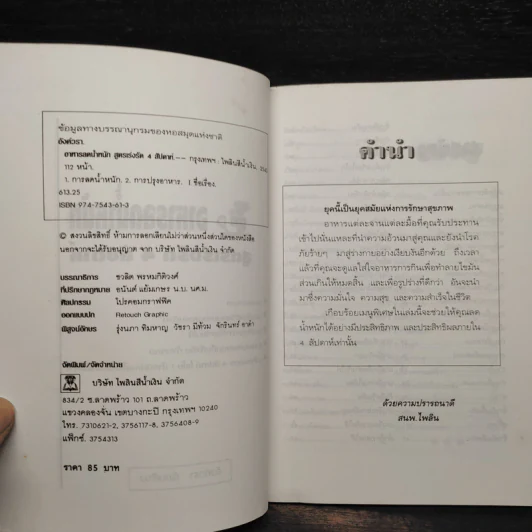 ข้อมูลทางบรรณานุกรมของหอสมุดแห่งชาติ
อังศ์วรา.
อาหารลดน้ำหนัก สูตรเร่งรัด 4 สัปดาห์.-- กรุงเทพฯ. ไพลินสีน้ำเงิน,
112 หน้า.
1. การลดน้ำหนัก. 2. การปรุงอาหาร. I ชื่อเรื่อง.
613.25
ISBN 974-7543-61-3
© สงวนลิขสิทธิ์ ห้ามการลอกเลียนไม่ว่าส่วนหนึ่งส่วนใดของหนังสือ
นอกจากจะได้รับอนุญาต จาก บริษัท ไพลินสีน้ำเงิน จำกัด
บรรณาธิการ ชวลิต พรหมกิติวงศ์
ที่ปรึกษากฎหมาย อนันต์ แย้มเกษร น.บ. นศ.ม.
ศิลปกรรม โปรคอมกราฟฟิค
ออกแบบปก Retouch Graphic
พิสูจน์อักษร รุ่งนภา ทิมหาญ วัชรา มีท้วม จักรินทร์
จัดพิมพ์/จัดจำหน่าย
บริษัท ไพลินสีน้ำเงิน จำกัด
834/2 ซ.ลาดพร้าว 101 ถ.ลาดพร้าว
แขวงคลองจั่น เขตบางกะปิ กรุงเทพฯ 10240
โทร. 7310621-2, 3756117-8, 3756408-9
แฟ็กซ์. 3754313
ราคา 85 บาท
คำนำ
ยุคนี้เป็นยุคสมัยแห่งการรักษาสุขภาพ
อาหารแต่ละจานแต่ละมื้อที่คุณรับประทาน
เข้าไปนั่นแหละที่นำความอ้วนมาสู่คุณและยังนำโรค
ภัยร้ายๆ มาสู่ร่างกายอย่างเงียบงันอีกด้วย ถึงเวลา
แล้วที่คุณจะดูแลใส่ใจอาหารการกินเพื่อทำลายไขมัน
ส่วนเกินให้หมดสิ้น และเพื่อรูปร่างที่ดีกว่า อันจะนำ
มาซึ่งความมั่นใจ ความสุข และความสำเร็จในชีวิต
เกือบร้อยเมนูพิเศษในเล่มนี้จะช่วยให้คุณลด
น้ำหนักได้อย่างมีประสิทธิภาพ และประสิทธิผลภายใน
4 สัปดาห์เท่านั้น
ด้วยความปรารถนาดี
สนพ.ไพลิน